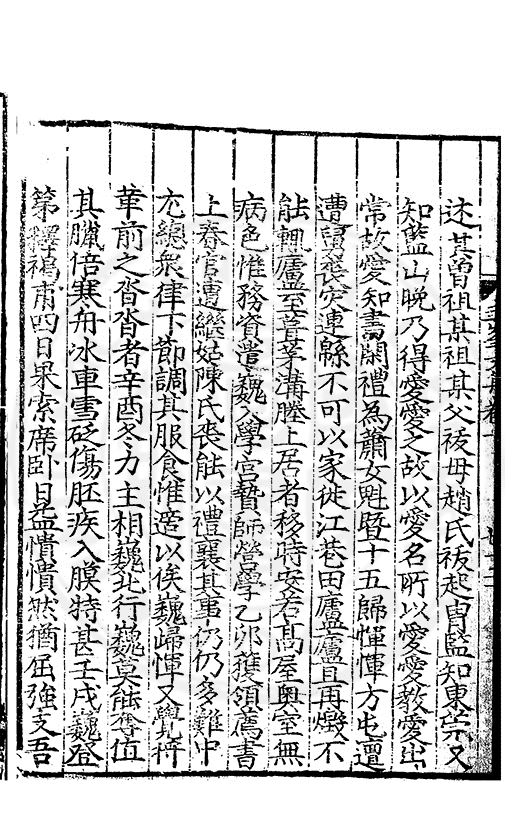 述其曾祖某祖某父祓母趙氏祓起胄監知東筦又
知藍山晚乃得愛愛之故以愛名所以愛愛教愛出
常故愛知書閑禮為蕭女魁暨十五歸惲惲方屯邅
遭舋喪灾連緜不可以家徙江巷田廬廬且再燬不
能輒廬至葺茅溝塍上居者移時安若髙屋奥室無
病色惟務資遣巍入學宫贄師營學乙卯獲領薦書
上春官遭繼姑陳氏喪能以禮襄其事仍仍多難中
尤總衆律下節調其服食惟適以俟巍歸惲又與忤
華前之沓沓者辛酉冬力主相巍北行巍莫能奪值
其臘倍寒舟冰車雪砭傷胚疾入膜特甚壬戌巍登
第釋褐甫四日果索席卧日益憒憒然猶倔強支吾